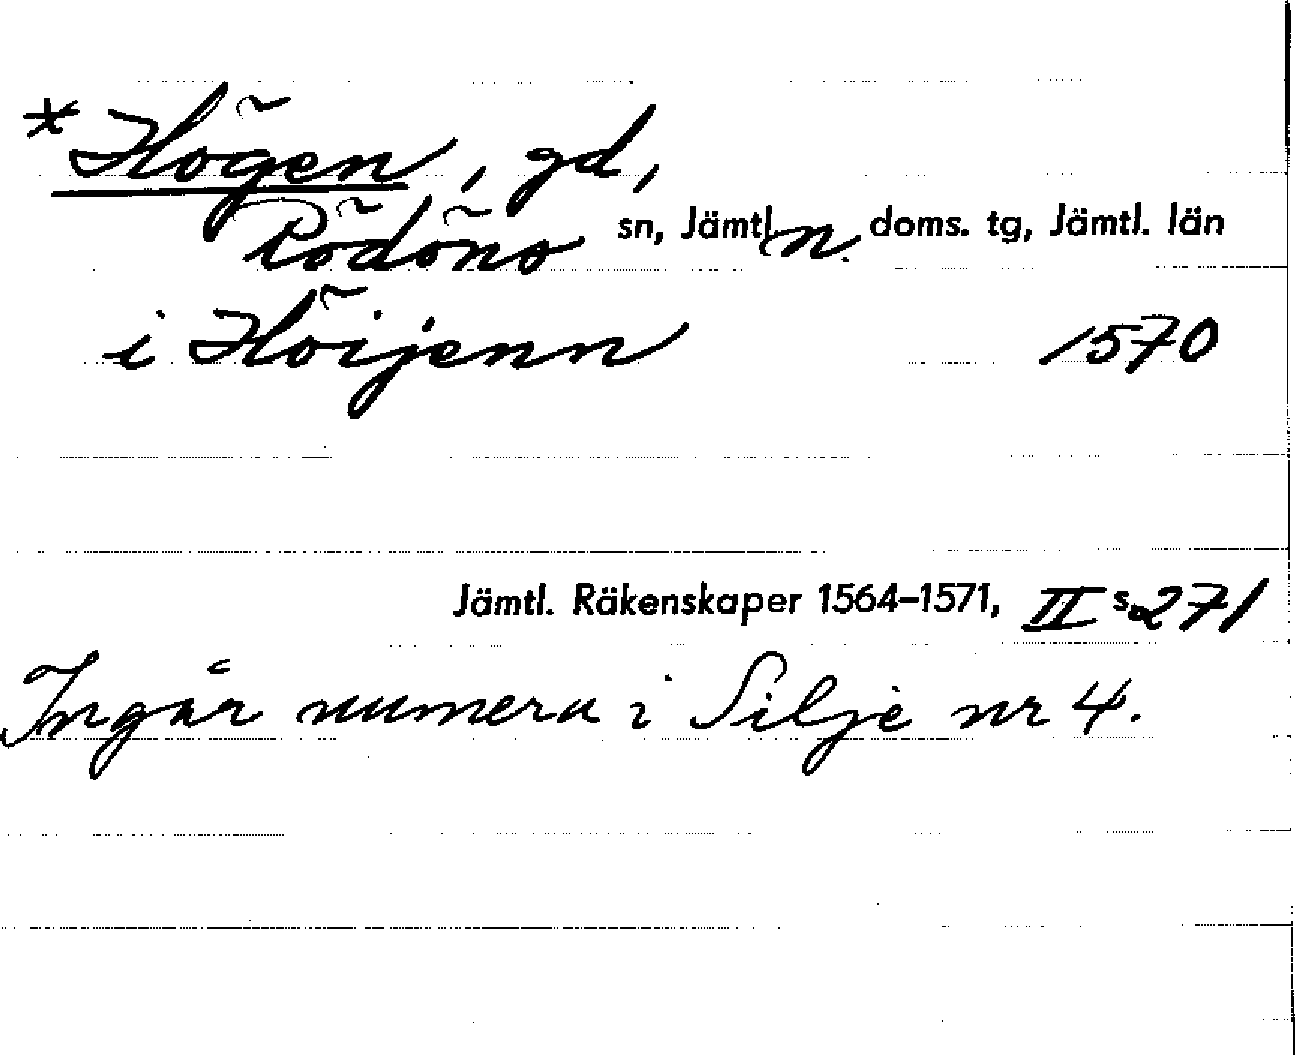 *Högen, gd,
Rödöns sn, Jämtl n. doms. tg, Jämtl. län
i Höijenn 1570
Jämtl. Räkenskaper 1564-1571, II s. 271
Ingår numera i Silje nr 4.